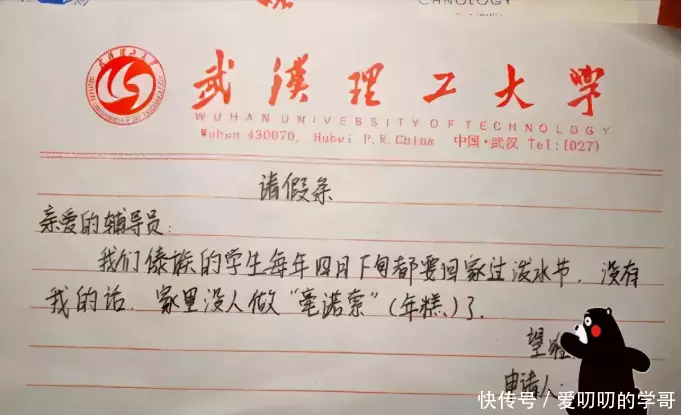 武漢理工大学
WUHAN UNIVERSITY OF TECHNOLOGY
Wuhan 430070, Hubei P.R.China 中国·武汉 Tel:(027)
请假条
亲爱的辅导员:
我们傣族的学生每年四月下旬都要回家过泼水节.没有
我的话.家里没人做“毫诺索”(年糕.)了.
望
申请人:
快传号/爱叨叨的学哥